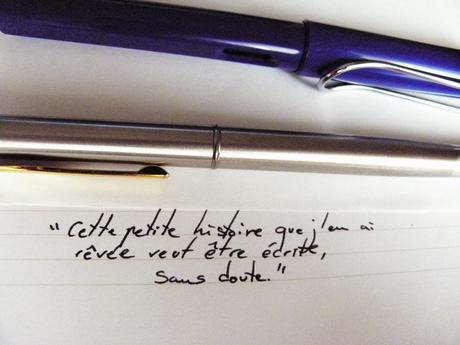 "Cette petite histoire que j'en ai
rêvée veut être écrite,
sans doute."